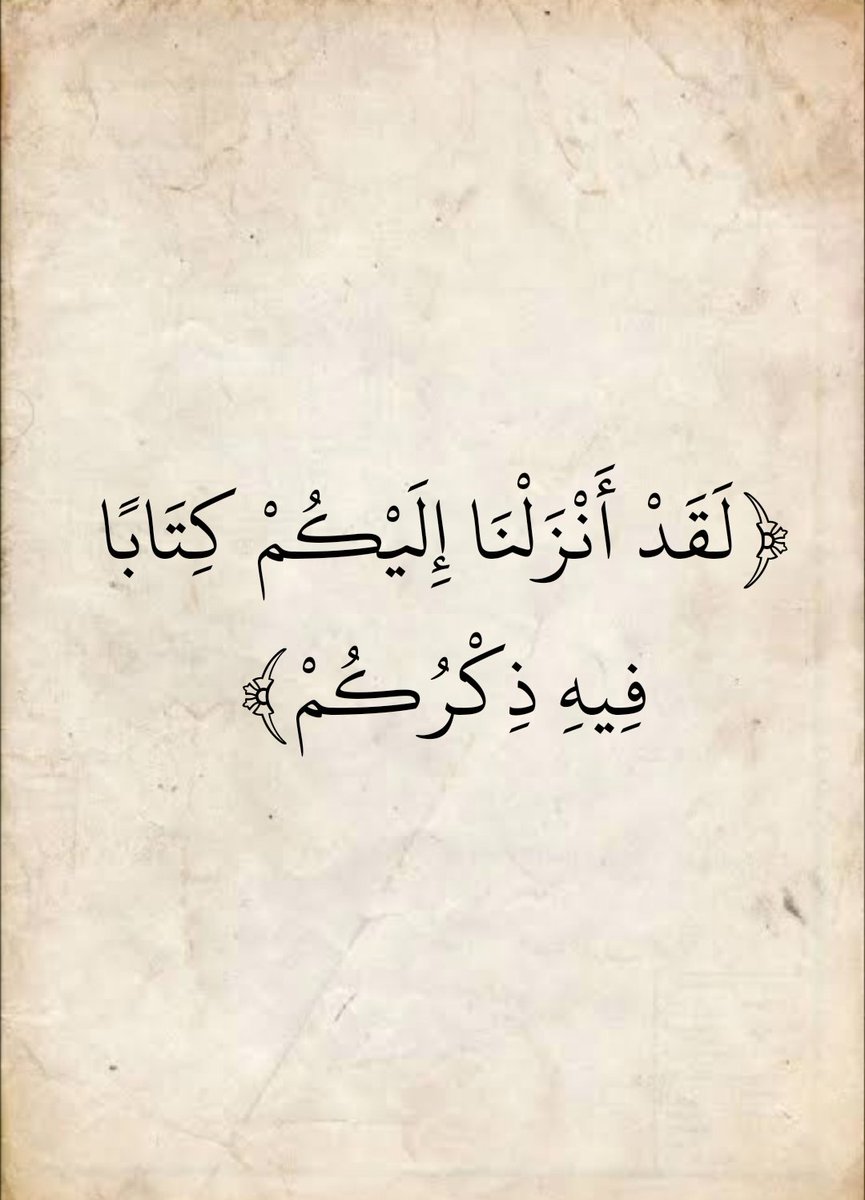 ﴿لَقَدْ أَنْزَلْنَا إِلَيْكُمْ كِتَابًا
فِيهِ ذِكْرُكُمْ﴾